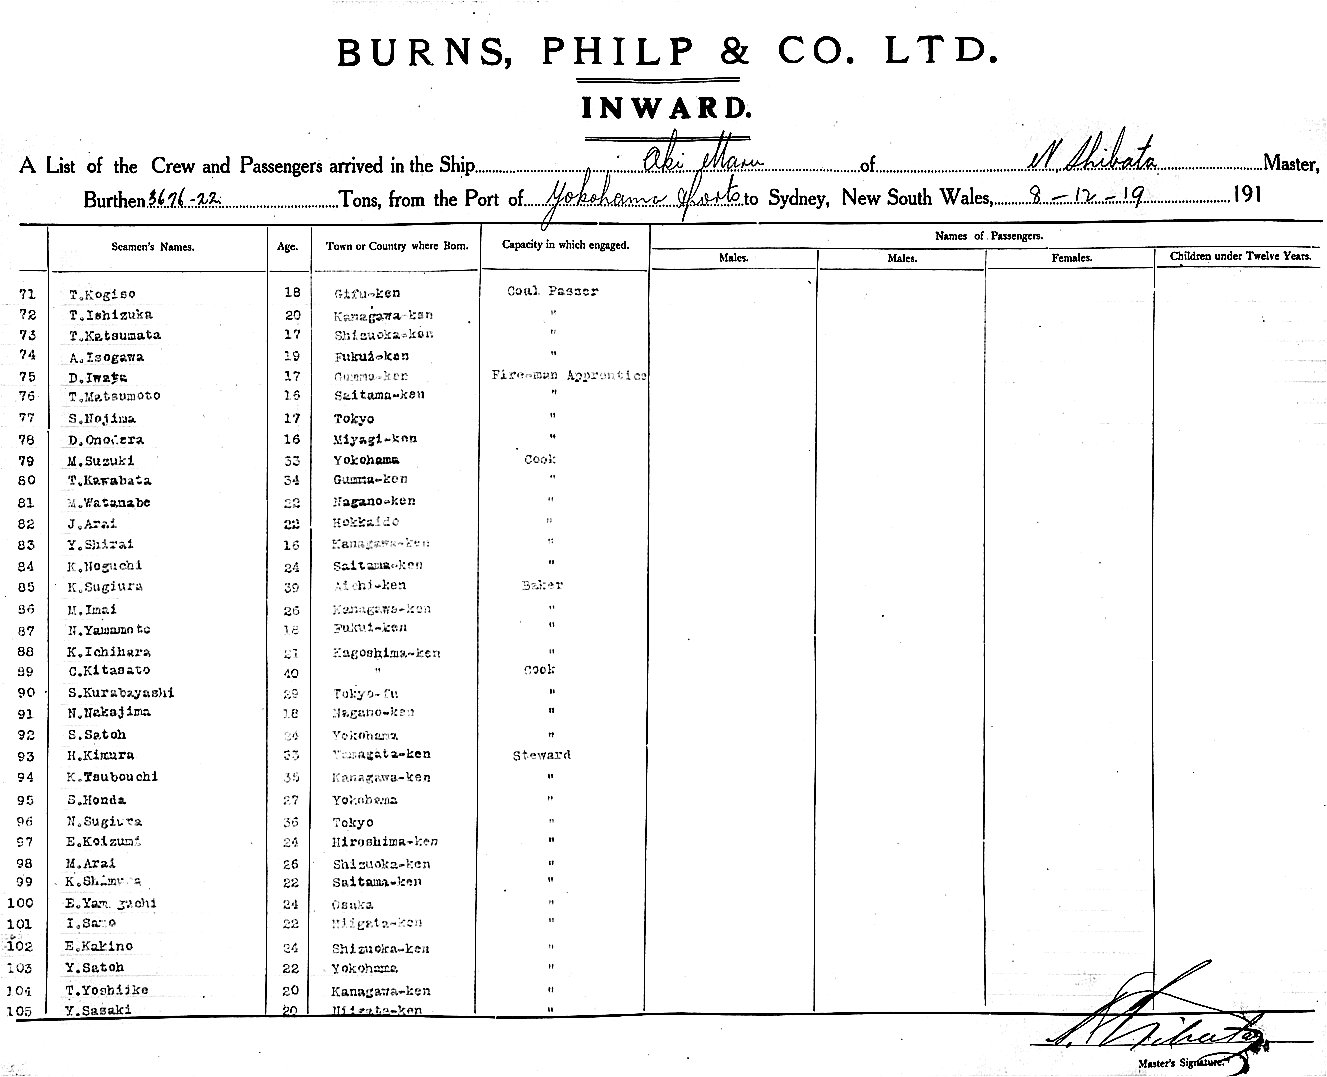 BURNS, PHILP & CO. LTD.
INWARD.
A List of the Crew and Passengers arrived in the Ship Aki Maru of N. Shibata Master,
Burthen 3676-22 Tons, from the Port of Yokohama & Ports to Sydney, New South Wales, 8-12-19 191
Names of Passengers.
Seamen's Names. Age. Town or Country where Born. Capacity in which engaged. Males. Males. Females. Children under Twelve Years.
71 T.Kogiso 18 Gifu-ken Coal Passer
72 T.Ishizuka 20 Kanagawa-ken "
73 T.Katsumata 17 Shizuoka-ken "
74 A.Isogawa 19 Fukui-ken "
75 D.Iwata 17 Gumma-ken Fire-man Apprentice
76 T.Matsumoto 16 Saitama-ken "
77 S.Nojima 17 Tokyo "
78 D.Onodera 16 Miyagi-ken "
79 M.Suzuki 33 Yokohama Cook
80 T.Kawabata 34 Gumma-ken "
81 M.Watanabe 22 Nagano-ken "
82 J.Arai 22 Hokkaido "
83 Y.Shirai 16 Kanagawa-ken "
84 K.Noguchi 24 Saitama-ken "
85 K.Sugiura 39 Aichi-ken Baker
86 M.Imai 26 Kanagawa-ken "
87 N.Yamamoto 18 Fukui-ken "
88 K.Ichihara Kagoshima-ken "
89 C.Kitasato 40 " Cook
90 S.Kurabayashi 29 Tokyo-fu "
91 N.Nakajima 18 Nagano-ken "
92 S.Satoh Yokohama "
93 H.Kimura 33 Yamagata-ken Steward
94 K.Tsubouchi 35 Kanagawa-ken "
95 S.Honda 27 Yokohama "
96 N.Sugiura 36 Tokyo "
97 E.Koizumi 24 Hiroshima-ken "
98 M.Arai 26 Shizuoka-ken "
99 K.Shimura 22 Saitama-ken "
100 E.Yamaguchi 24 Osaka "
101 I.Sano 22 Niigata-ken "
102 E.Kakino 24 Shizuoka-ken "
103 Y.Satoh 22 Yokohama "
104 T.Yoshiike 20 Kanagawa-ken "
105 Y.Sasaki 20 Niigata-ken "
N. Shibata
Master's Signature.